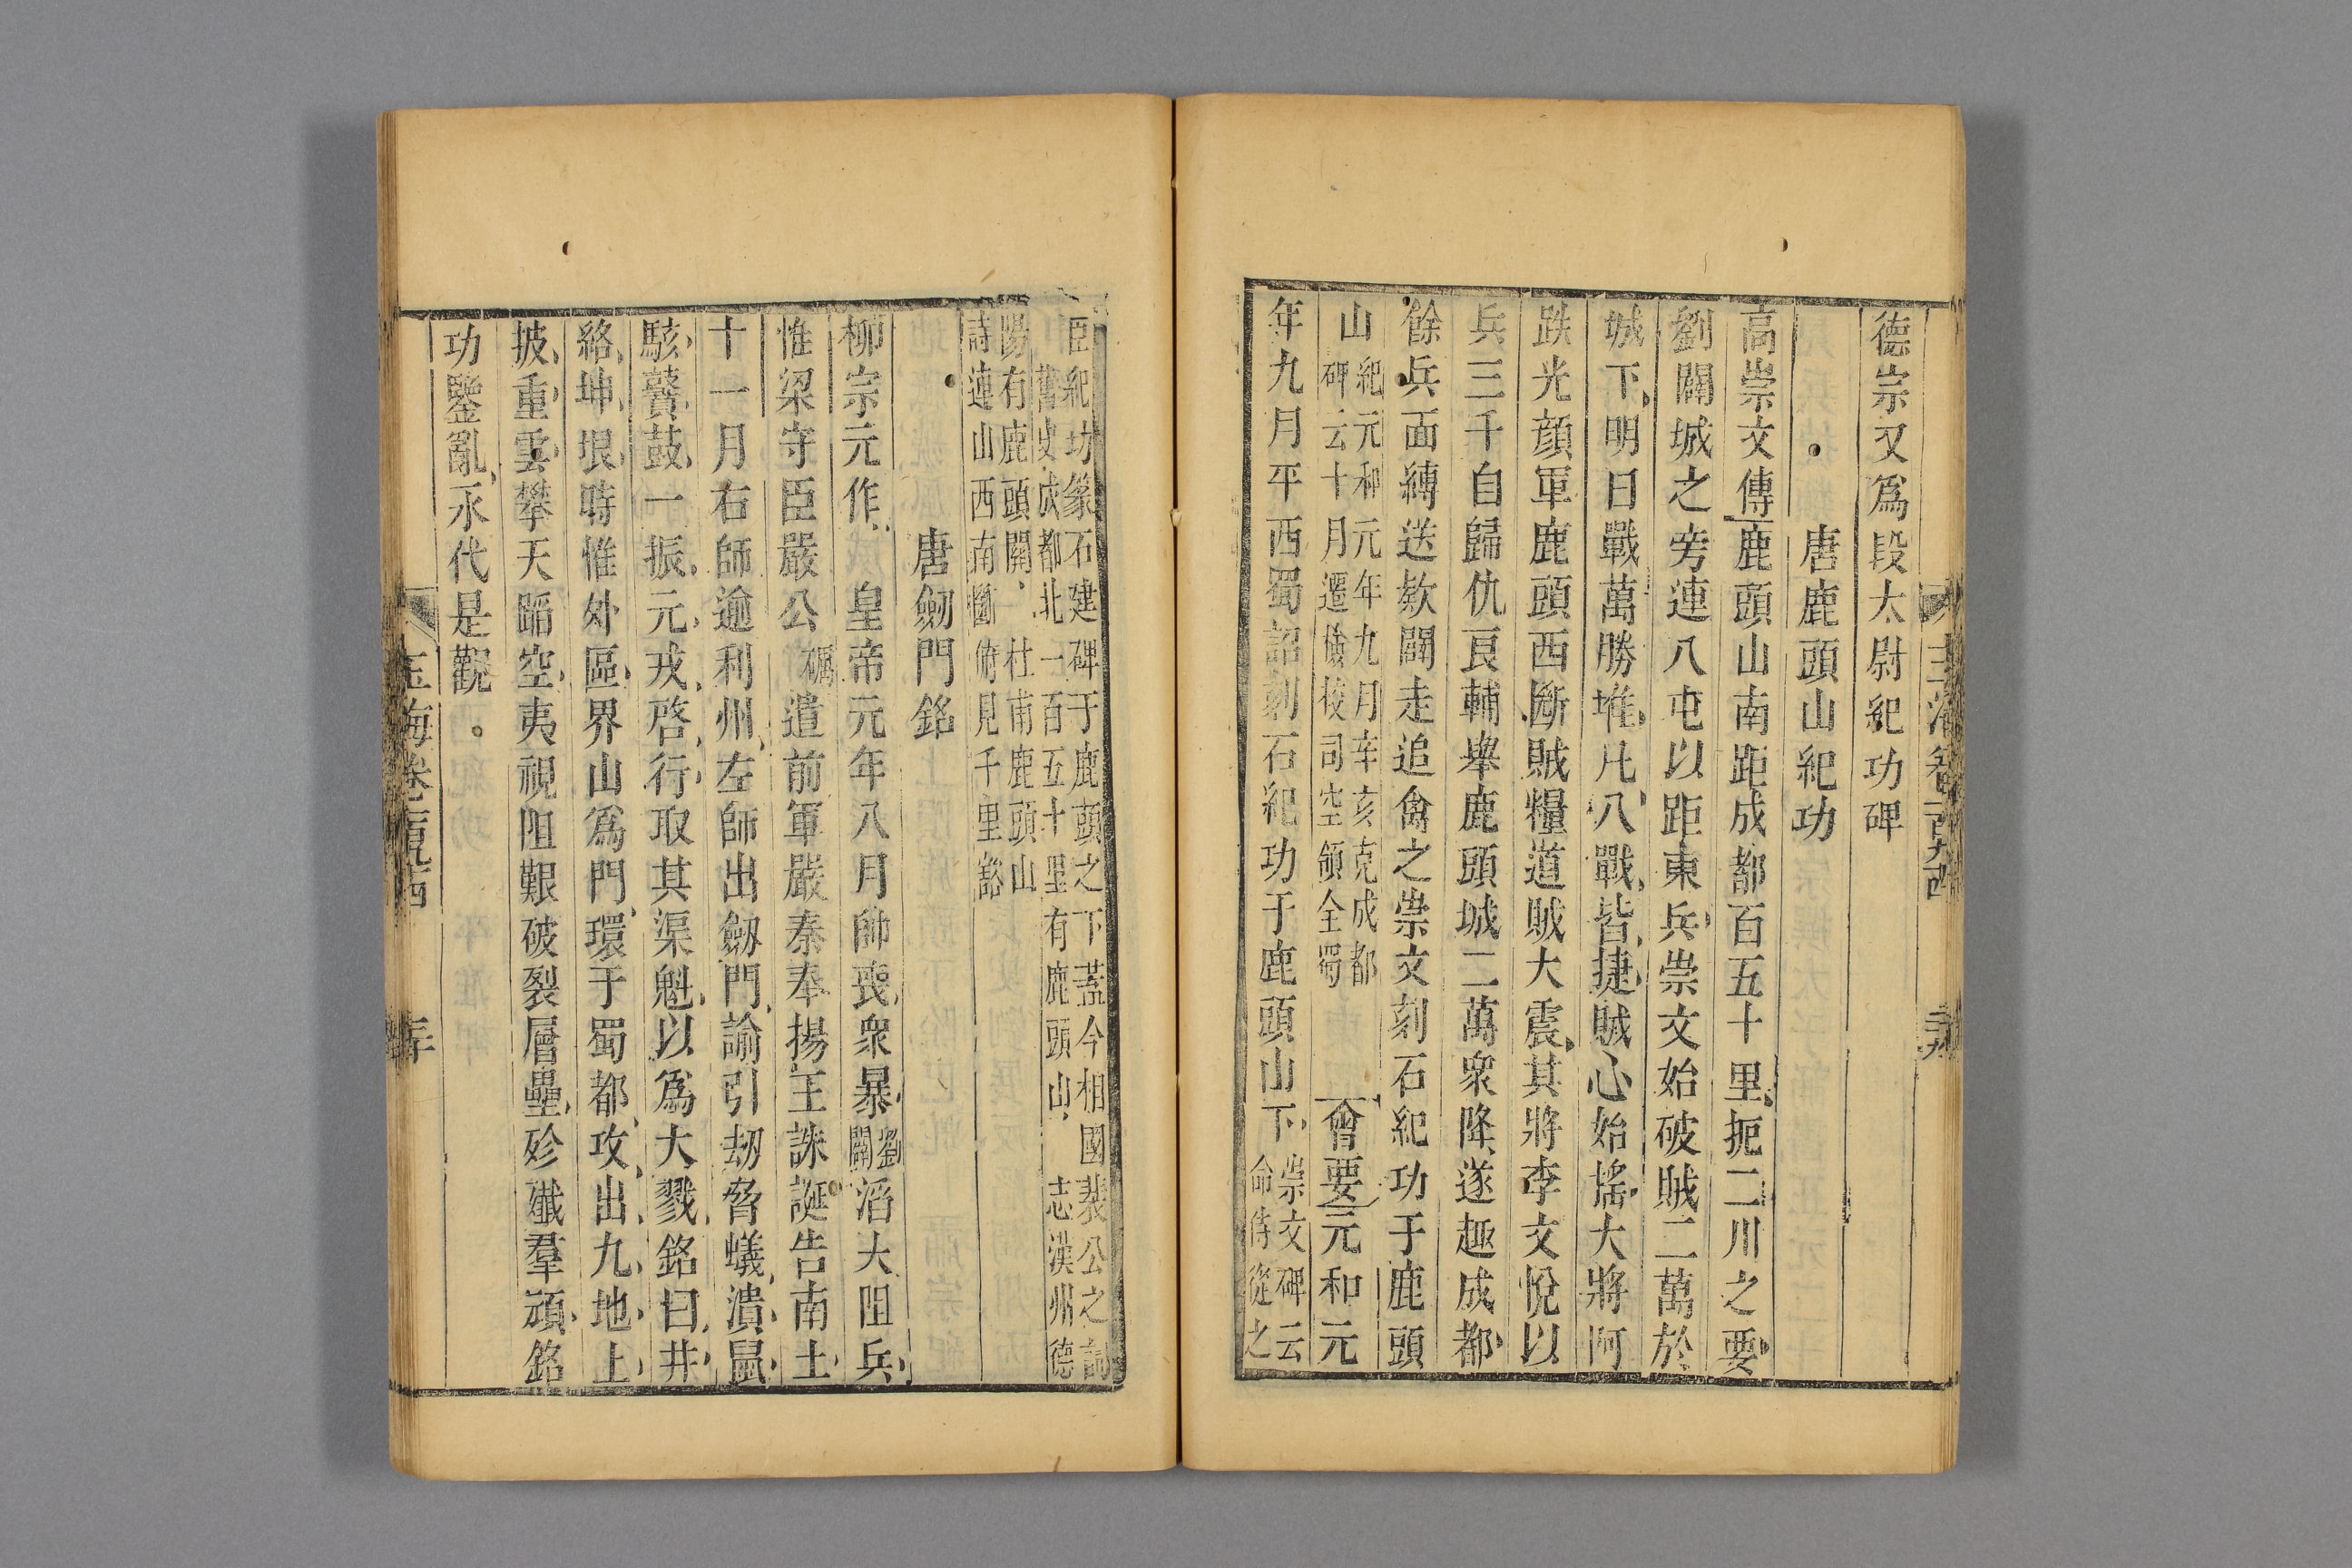 德宗又爲段太尉紀功碑
唐鹿頭山紀功
高崇文傳鹿頭山南距成都百五十里扼二川之要
劉闢城之旁連八屯以距東兵崇文始破賊二萬於
城下明日戰萬勝堆凡八戰皆捷賊心始搖大將阿
跌光顏軍鹿頭西斷賊糧道賊大震其將李文悅以
兵三千自歸仇良輔舉鹿頭城二萬衆降遂趣成都
餘兵面縛送欵闢走追禽之崇文刻石紀功于鹿頭
山紀元和元年九月辛亥克成都
碑云十月遷檢校司空領全蜀
會要元和元
年九月平西蜀詔刻石紀功于鹿頭山下崇文碑云
命侍從之
臣紀功篆石建碑于鹿頭之下蓋今相國裴公之詞
舊史成都北一百五十里有鹿頭山志漢州德
陽有鹿頭關杜甫鹿頭山
詩連山西南斷俯見千里豁
唐劒門銘
柳宗元作皇帝元年八月帥喪衆暴劉闢滔大阻兵
惟梁守臣嚴公礪遣前軍嚴秦奉揚王誅誕告南土
十一月右師逾利州左師出劒門諭引劫脅蟻潰鼠
駭鼖鼓一振元戎啓行取其渠魁以爲大戮銘曰井
絡坤垠時惟外區界山爲門環于蜀都攻出九地上
披重雲攀天蹈空夷視阻艱破裂層壘殄殲羣頑銘
功鑒亂永代是觀
玉海卷一百九十四
三十